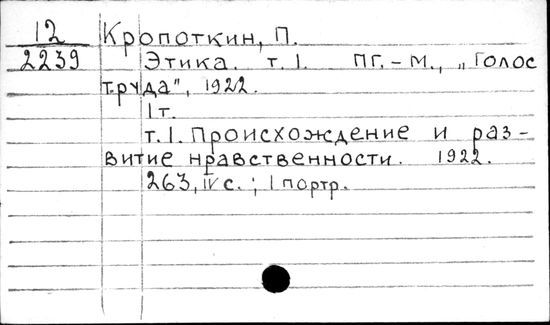 12 Кропоткин, П.
2239 Этика. т.1. ПГ.-М., „Голос
труда", 1922.
1 т.
т.1. Происхождение и раз-
витие нравственности. 1922.
263, IV с. ; 1 портр.